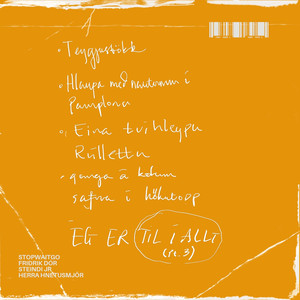 • Teygjustökk
• Hlaupa með nautunum í
Pamplona
• Eina tvíhleypu
Rúllettu
• ganga á kolum
safna í hökutopp
ÉG ER TIL Í ALLT
(pt. 3)
STOPWAITGO
FRIDRIK DOR
STEINDI JR
HERRA HNETUSMJÖR